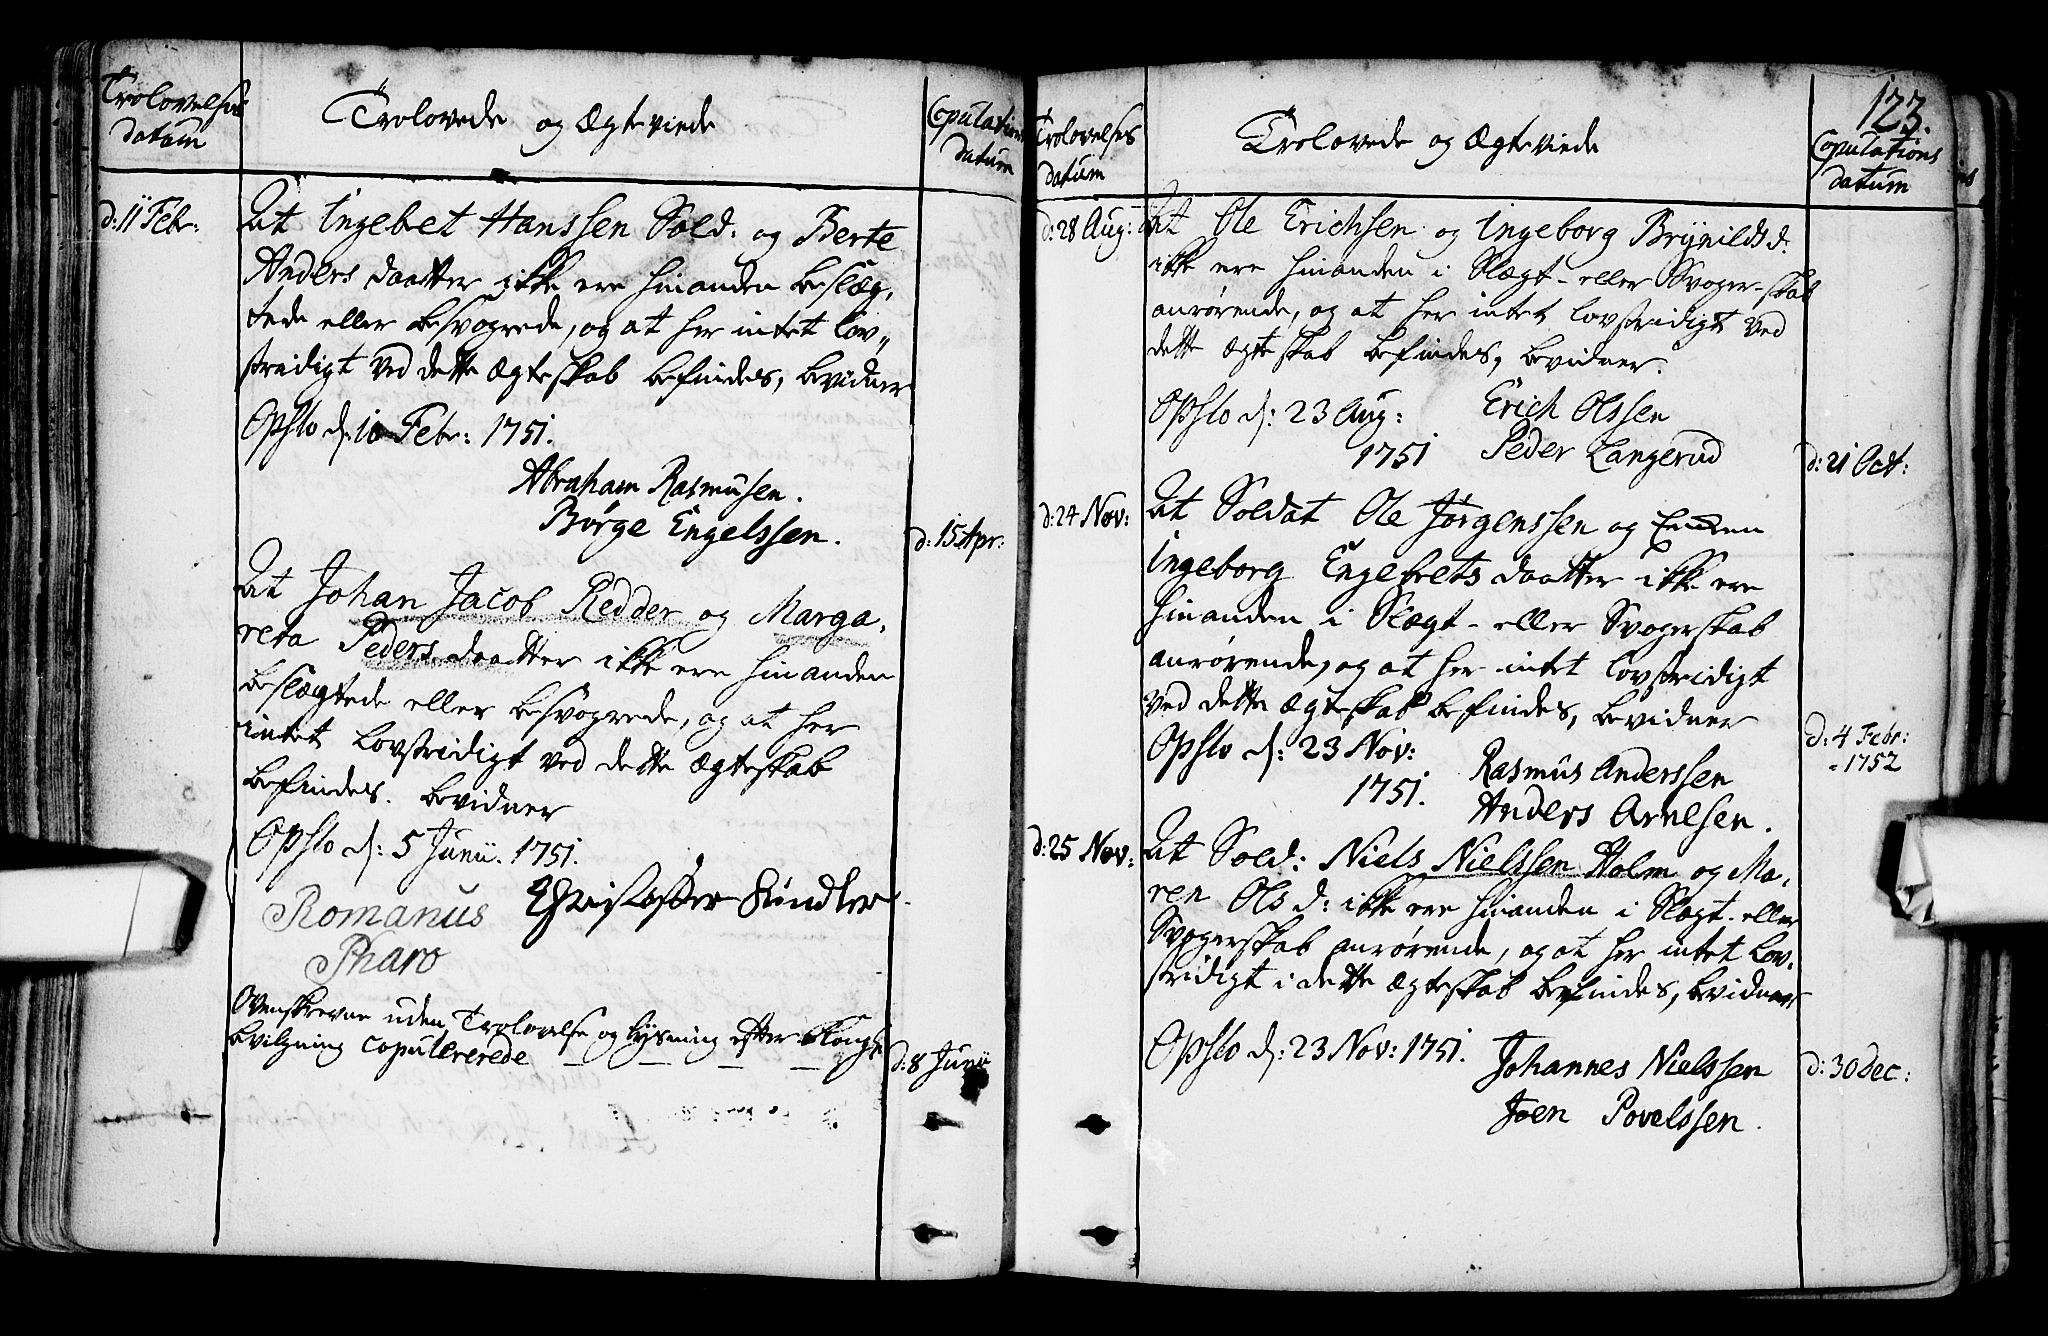 Trolovelses
datum
Trolovede og Ægteviede
Copulations
datum
d: 11 Febr:
At Ingebet Hanssen Sold: og Berte
Anders daatter ikke ere hinanden beslæg,
tede eller besvogrede, og at her intet lov„
stridigt ved dette Ægteskab befindes, bevidner
Opslo d: 10 Febr: 1751.
Abraham Rasmusen.
Børge Engelssen.
d: 15 Apr:
At Johan Jacob Redder og Marga,
reta Peders daatter ikke ere hinanden
beslægtede eller besvogrede, og at her
intet lovstridigt ved dette Ægteskab
befindes. bevidner
Opslo d: 5 Junii. 1751.
Romanus Christoffer Kindler.
Pharo
Ovenskrevne uden Trolovelse og Lysning efter Kongl.
bevilgning copulererede
d: 8 Junii
123.
Trolovelses
datum
Trolovede og Ægteviede
Copulations
datum
d: 28 Aug:
At Ole Erichsen og Ingeborg Brynilds d.
ikke ere hinanden i Slægt- eller Svoger-skab
anrørende, og at her intet lovstridigt ved
dette Ægteskab befindes, bevidner.
Opslo d: 23 Aug: Erich Olssen
1751 Peder Langerud
d: 21 Oct:
d: 24 Nov:
At Soldat Ole Jørgenssen og Enken
Ingeborg Engebrets daatter ikke ere
hinanden i Slægt- eller Svogerskab
anrørende, og at her intet lovstridigt
ved dette Ægteskab befindes, bevidner
Opslo d: 23 Nov: Rasmus Anderssen
1751. Anders Arnesen.
d: 4 Febr:
1752
d: 25 Nov:
At Sold: Niels Nielssen Holm og Ma,
ren Ols d: ikke ere hinanden i Slægt- eller
Svogerskab anrørende, og at her intet lov,
stridigt i dette Ægteskab befindes, bevidner
Opslo d: 23 Nov: 1751. Johannes Nielssen
Joen Povelssen.
d: 30 Dec: